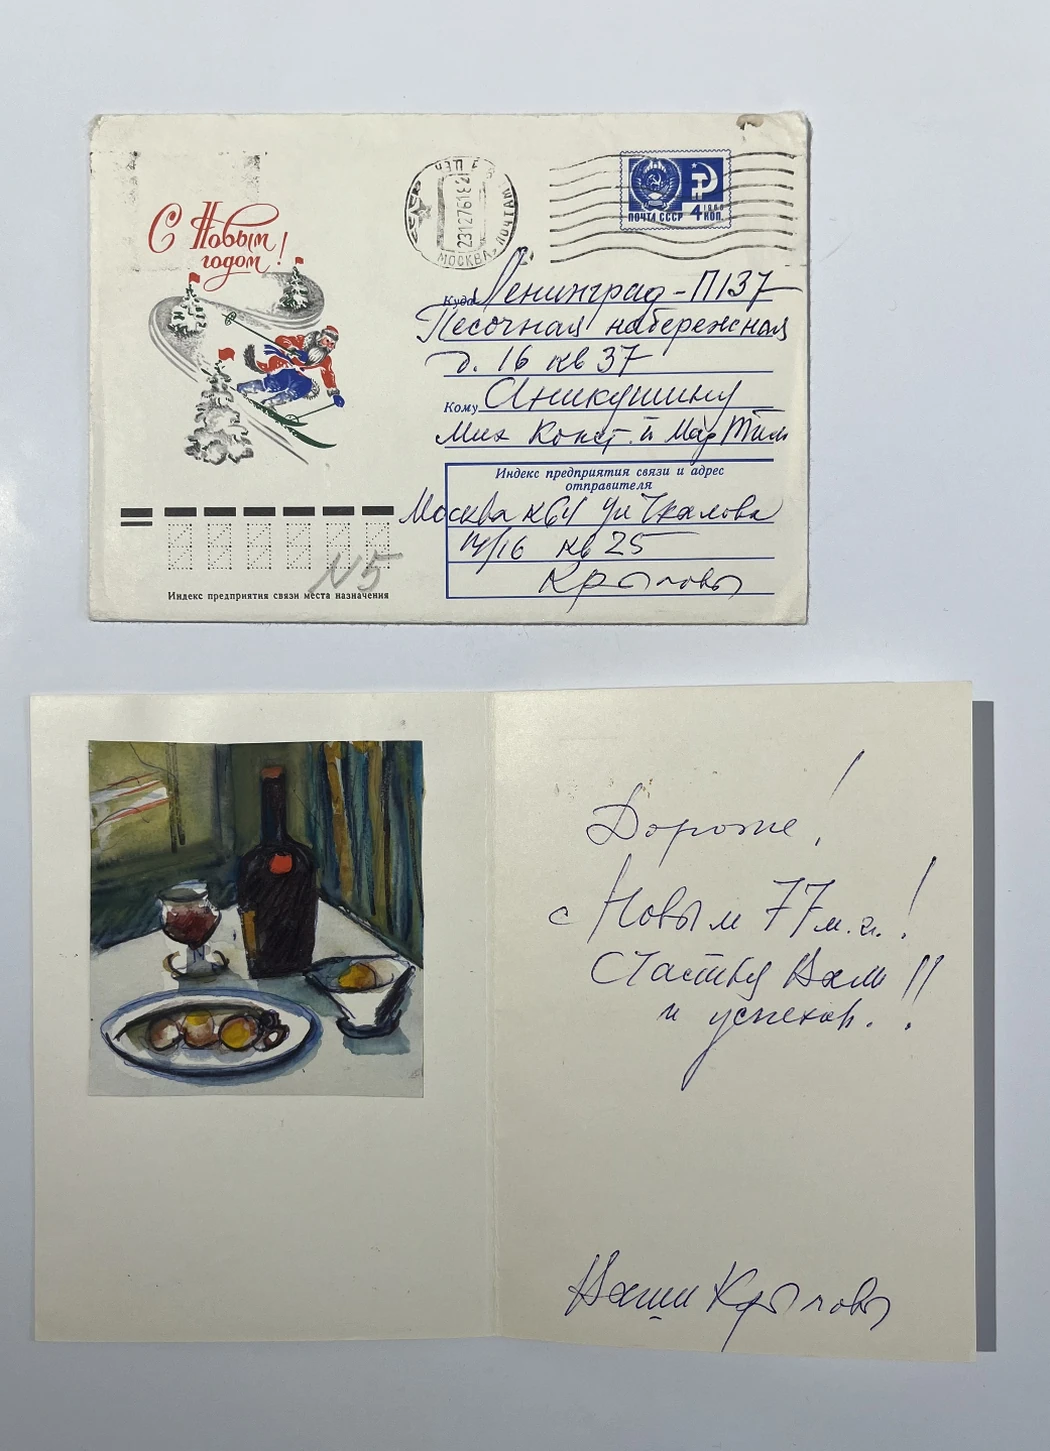 С Новым
годом!
МОСКВА
ПОЧТАМТ
231276
ПОЧТА СССР
1966
4 КОП.
Куда Ленинград-П137
Песочная набережная
д. 16 кв 37
Кому Аникушину
Мих Конст. и Мар Тим
Индекс предприятия связи и адрес
отправителя
Москва К64 ул Чкалова
14/16 кв 25
Крыловы
N5
Индекс предприятия связи места назначения
Дорогие!
с Новым 77м.г.!
Счастья Вам!!
и успехов.!
Ваши Крыловы